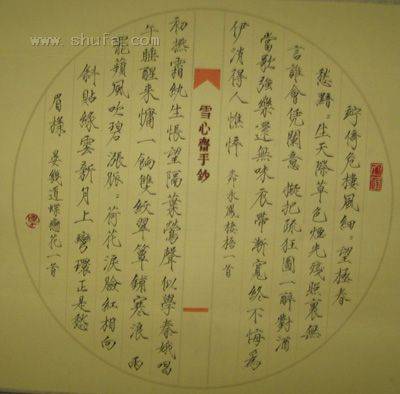 www.shufa.com
竚倚危樓風細〻望極春
愁黯〻生天際草色煙光殘照裏無
言誰會凭闌意擬把疏狂圖一醉對酒
當歌強樂還無味衣帶漸寬終不悔為
伊消得人憔悴 柳永鳳棲梧一首
雪心齋手鈔
初撚霜紈生悵望隔葉鶯聲似學秦娥唱
午睡醒來慵一餉雙紋翠簟鋪寒浪 雨
罷蘋風吹碧漲脈〻荷花淚臉紅相向
斜貼綠雲新月上彎環正是愁
眉樣 晏幾道蝶戀花一首